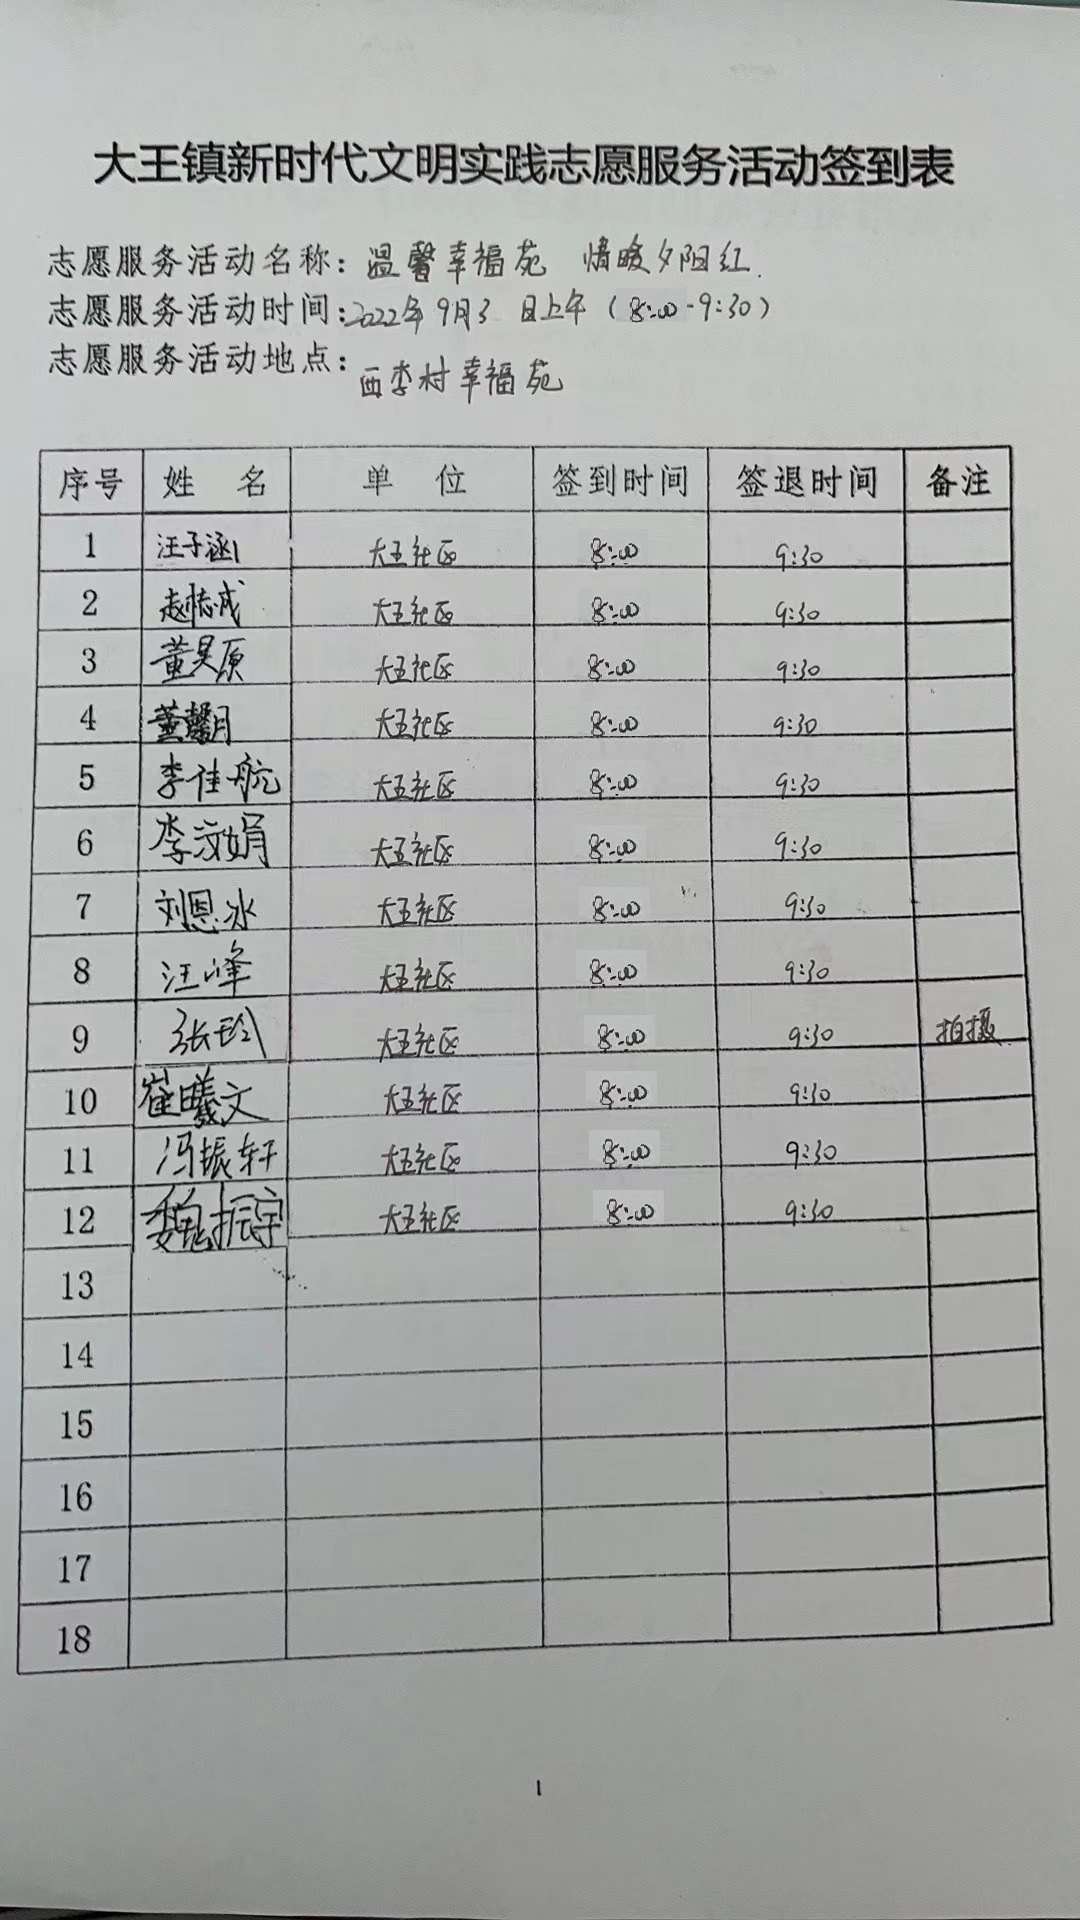 大王镇新时代文明实践志愿服务活动签到表
志愿服务活动名称：温馨幸福苑 情暖夕阳红.
志愿服务活动时间：2022年9月3日上午（8:00-9:30）
志愿服务活动地点：西李村幸福苑
序号 姓 名 单 位 签到时间 签退时间 备注
1 汪子涵 大王社区 8:00 9:30
2 赵恬成 大王社区 8:00 9:30
3 董昊原 大王社区 8:00 9:30
4 董馨月 大王社区 8:00 9:30
5 李佳航 大王社区 8:00 9:30
6 李汶娟 大王社区 8:00 9:30
7 刘恩冰 大王社区 8:00 9:30
8 汪峰 大王社区 8:00 9:30
9 张玲 大王社区 8:00 9:30 拍摄
10 崔曦文 大王社区 8:00 9:30
11 冯振轩 大王社区 8:00 9:30
12 魏振宇 大王社区 8:00 9:30
13
14
15
16
17
18
1